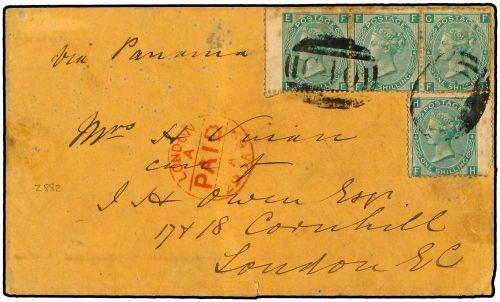 via Panama
E F F F G F
POSTAGE POSTAGE POSTAGE
ONE SHILLING ONE SHILLING ONE SHILLING
H
POSTAGE
ONE SHILLING
F H
Mrs H Vivian
care of
J H Owen Esqr
17 & 18 Cornhill
London EC
LONDON
PAID
Z 882